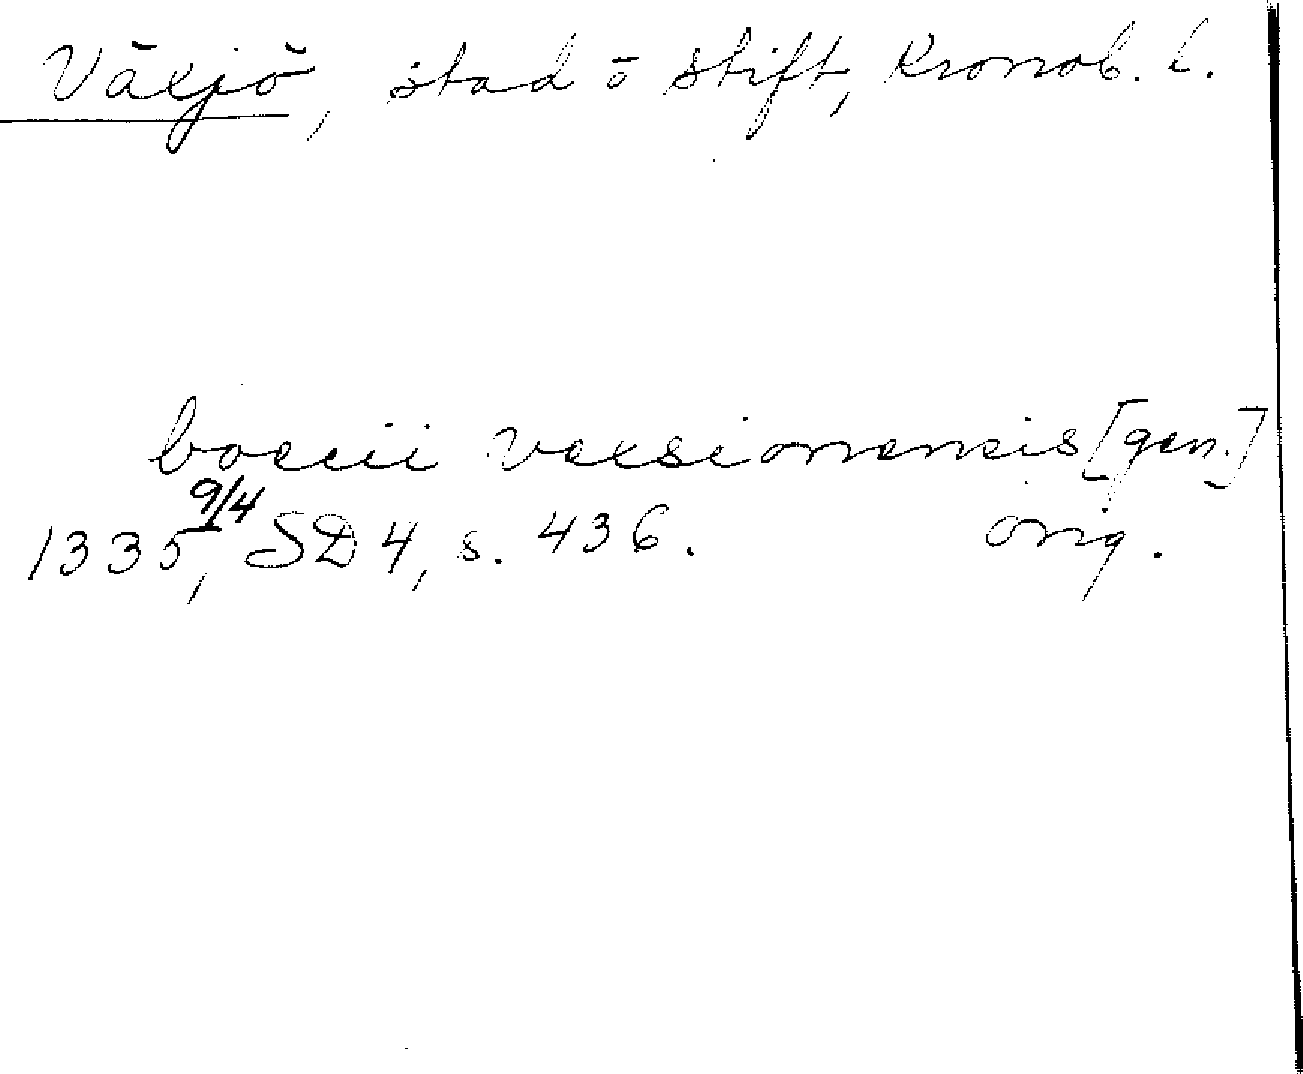 Växjö, stad o stift, Kronob. l.
boecii vexsionensis [gen.]
1335 9/4, SD 4, s. 436. orig.